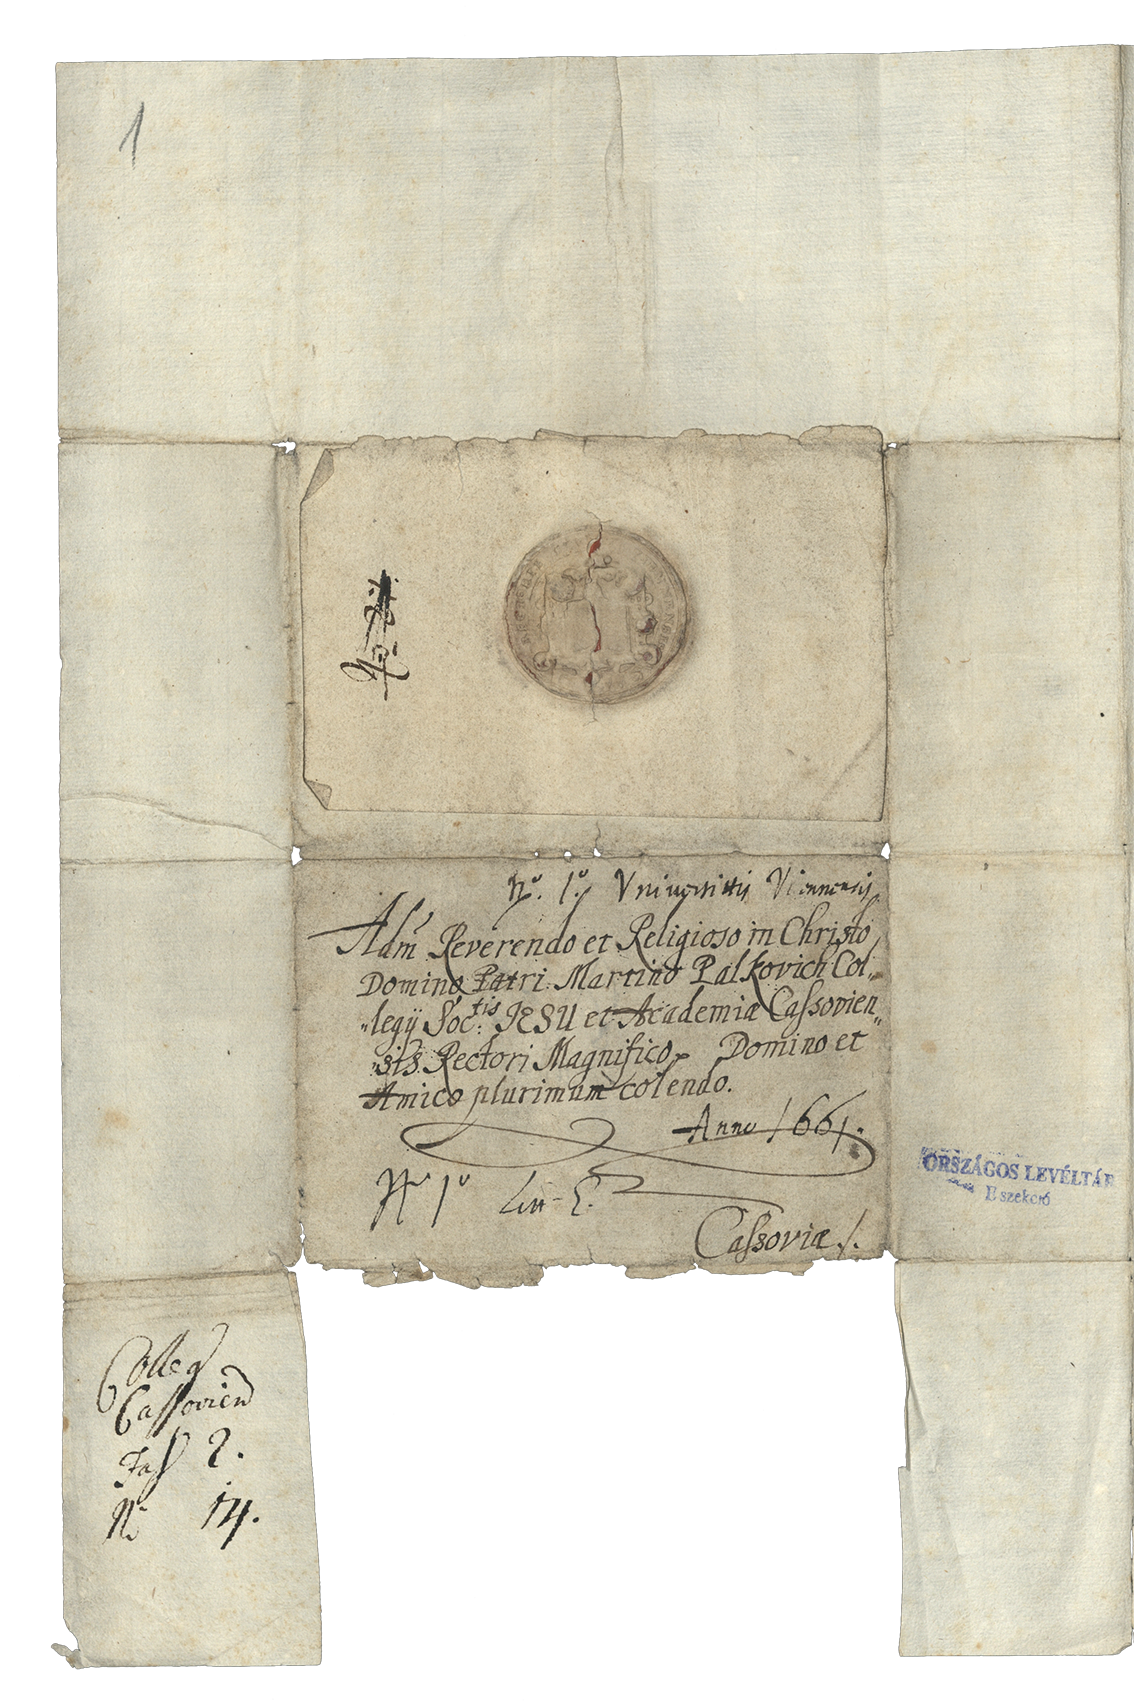 1
Nº. 1º. Universittis Viennensis
Adm Reverendo et Religioso in Christo
Domino Patri Martino Palkovich Col„
„legÿ Soc:tis JESU et Academiæ Cassovien„
sis Rectori Magnifico Domino et
Amico plurimum colendo.
Anno 1661.
Nº 1º Litt E.
Cassoviæ ./.
ORSZÁGOS LEVÉLTÁR
E szekció
Colleg
Cassovien
Fas 2.
Nº 14.